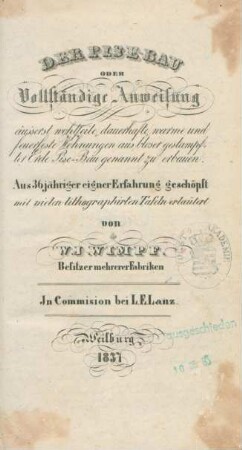 DER PISE-BAU
ODER
Vollständige Anweisung
äusserst wohlfeile, dauerhafte, warme und
feuerfeste Wohnungen aus bloser gestampf-
ter Erde, Pise-Bau genannt zu erbauen.
Aus 36jähriger eigner Erfahrung geschöpft
mit vielen lithographirten Tafeln erläutert
von
W. J. WIMPF.
Besitzer mehrerer Fabriken
In Commision bei L.E.Lanz.
Weilburg
1837
ausgeschieden